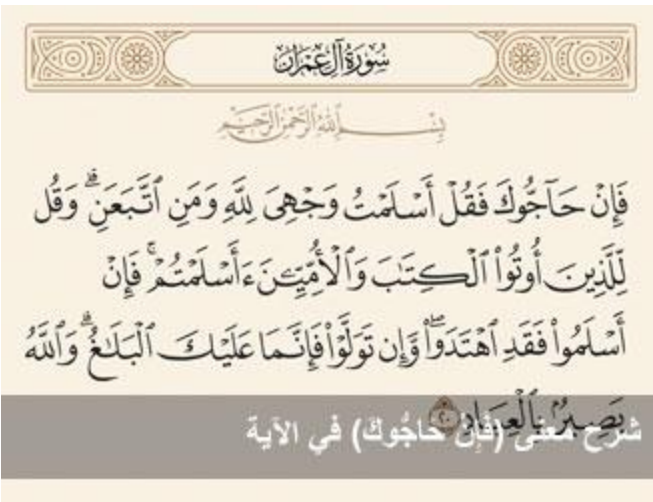 سُورَةُ آلِ عِمْرَانَ
بِسْمِ ٱللَّهِ ٱلرَّحْمَٰنِ ٱلرَّحِيمِ
فَإِنْ حَآجُّوكَ فَقُلْ أَسْلَمْتُ وَجْهِىَ لِلَّهِ وَمَنِ ٱتَّبَعَنِ ۗ وَقُل
لِّلَّذِينَ أُوتُوا۟ ٱلْكِتَٰبَ وَٱلْأُمِّيِّـۧنَ ءَأَسْلَمْتُمْ ۚ فَإِنْ
أَسْلَمُوا۟ فَقَدِ ٱهْتَدَوا۟ ۖ وَّإِن تَوَلَّوْا۟ فَإِنَّمَا عَلَيْكَ ٱلْبَلَٰغُ ۗ وَٱللَّهُ
بَصِيرٌۢ بِٱلْعِبَادِ ٢٠
شرح معنى (فَإِنْ حَاجُّوكَ) في الآية